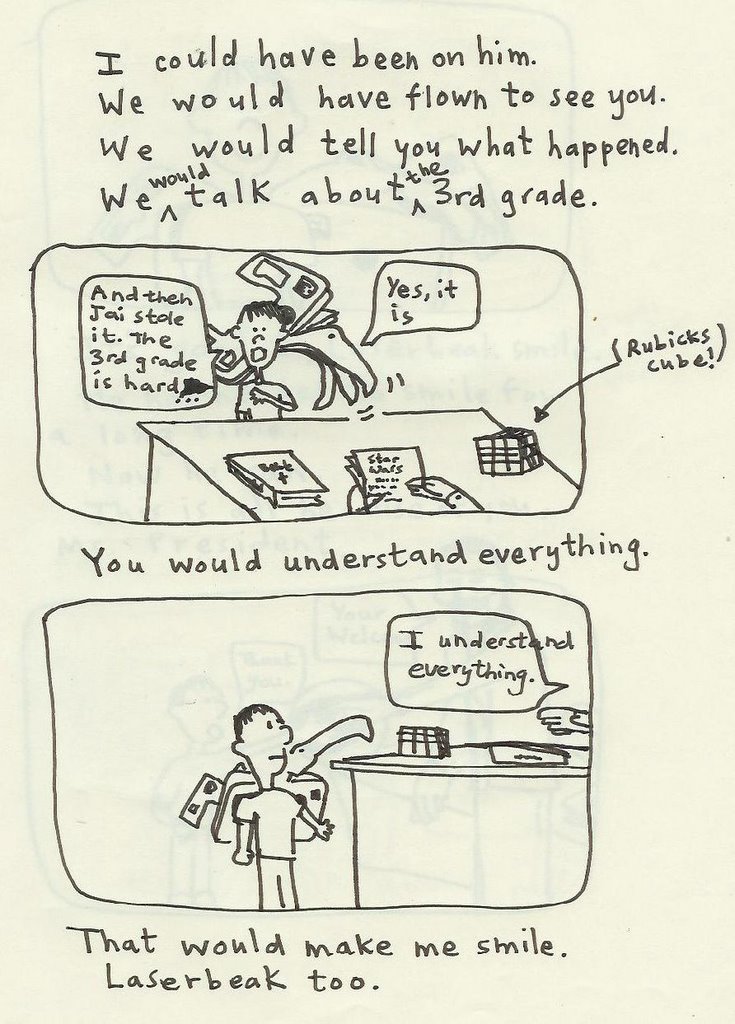 I could have been on him.
We would have flown to see you.
We would tell you what happened.
We would talk about the 3rd grade.
And then
Jai stole
it. The
3rd grade
is hard
...
Yes, it
is
(Rubicks
cube!)
Star
Wars
You would understand everything.
I understand
everything.
That would make me smile.
Laserbeak too.